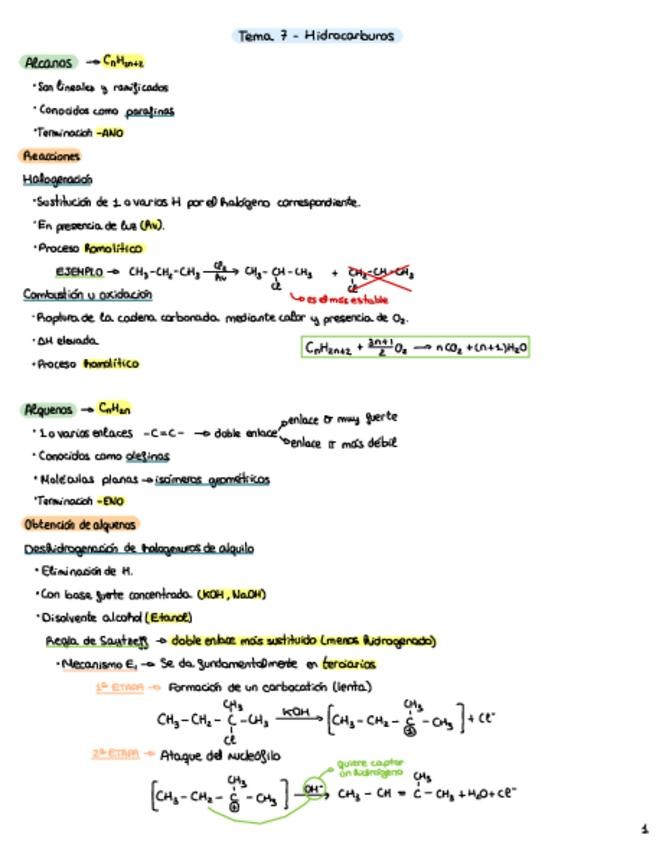 Tema 7 - Hidrocarburos
Alcanos → CnH2n+2
· Son lineales y ramificados
· Conocidos como parafinas
· Terminación -ANO
Reacciones
Halogenación
· Sustitución de 1 o varios H por el halógeno correspondiente.
· En presencia de luz (hν).
· Proceso homolítico
EJEMPLO → CH3-CH2-CH3 Cl2 hν → CH3-CH-CH3 + CH2-CH-CH3
Cl Cl
es el más estable
Combustión u oxidación
· Ruptura de la cadena carbonada mediante calor y presencia de O2.
· ΔH elevada
CnH2n+2 + 3n+1/2 O2 → nCO2 + (n+1)H2O
· Proceso homolítico
Alquenos → CnH2n
enlace σ muy fuerte
· 1 o varios enlaces -C=C- → doble enlace
enlace π más débil
· Conocidos como olefinas
· Moléculas planas → isómeros geométricos
· Terminación -ENO
Obtención de alquenos
Deshidrogenación de halogenuros de alquilo
· Eliminación de H.
· Con base fuerte concentrada (KOH, NaOH)
· Disolvente alcohol (Etanol)
Regla de Saytzeff → doble enlace más sustituido (menos hidrogenado)
· Mecanismo E1 → Se da fundamentalmente en terciarios
1ª ETAPA → Formación de un carbocatión (lenta)
CH3 CH3
CH3-CH2-C-CH3 KOH → [CH3-CH2-C-CH3] + Cl⁻
Cl ⊕
2ª ETAPA → Ataque del nucleófilo
quiere captar
un hidrógeno
CH3 CH3
[CH3-CH2-C-CH3] OH⁻ → CH3-CH=C-CH3 + H2O + Cl⁻
⊕
1